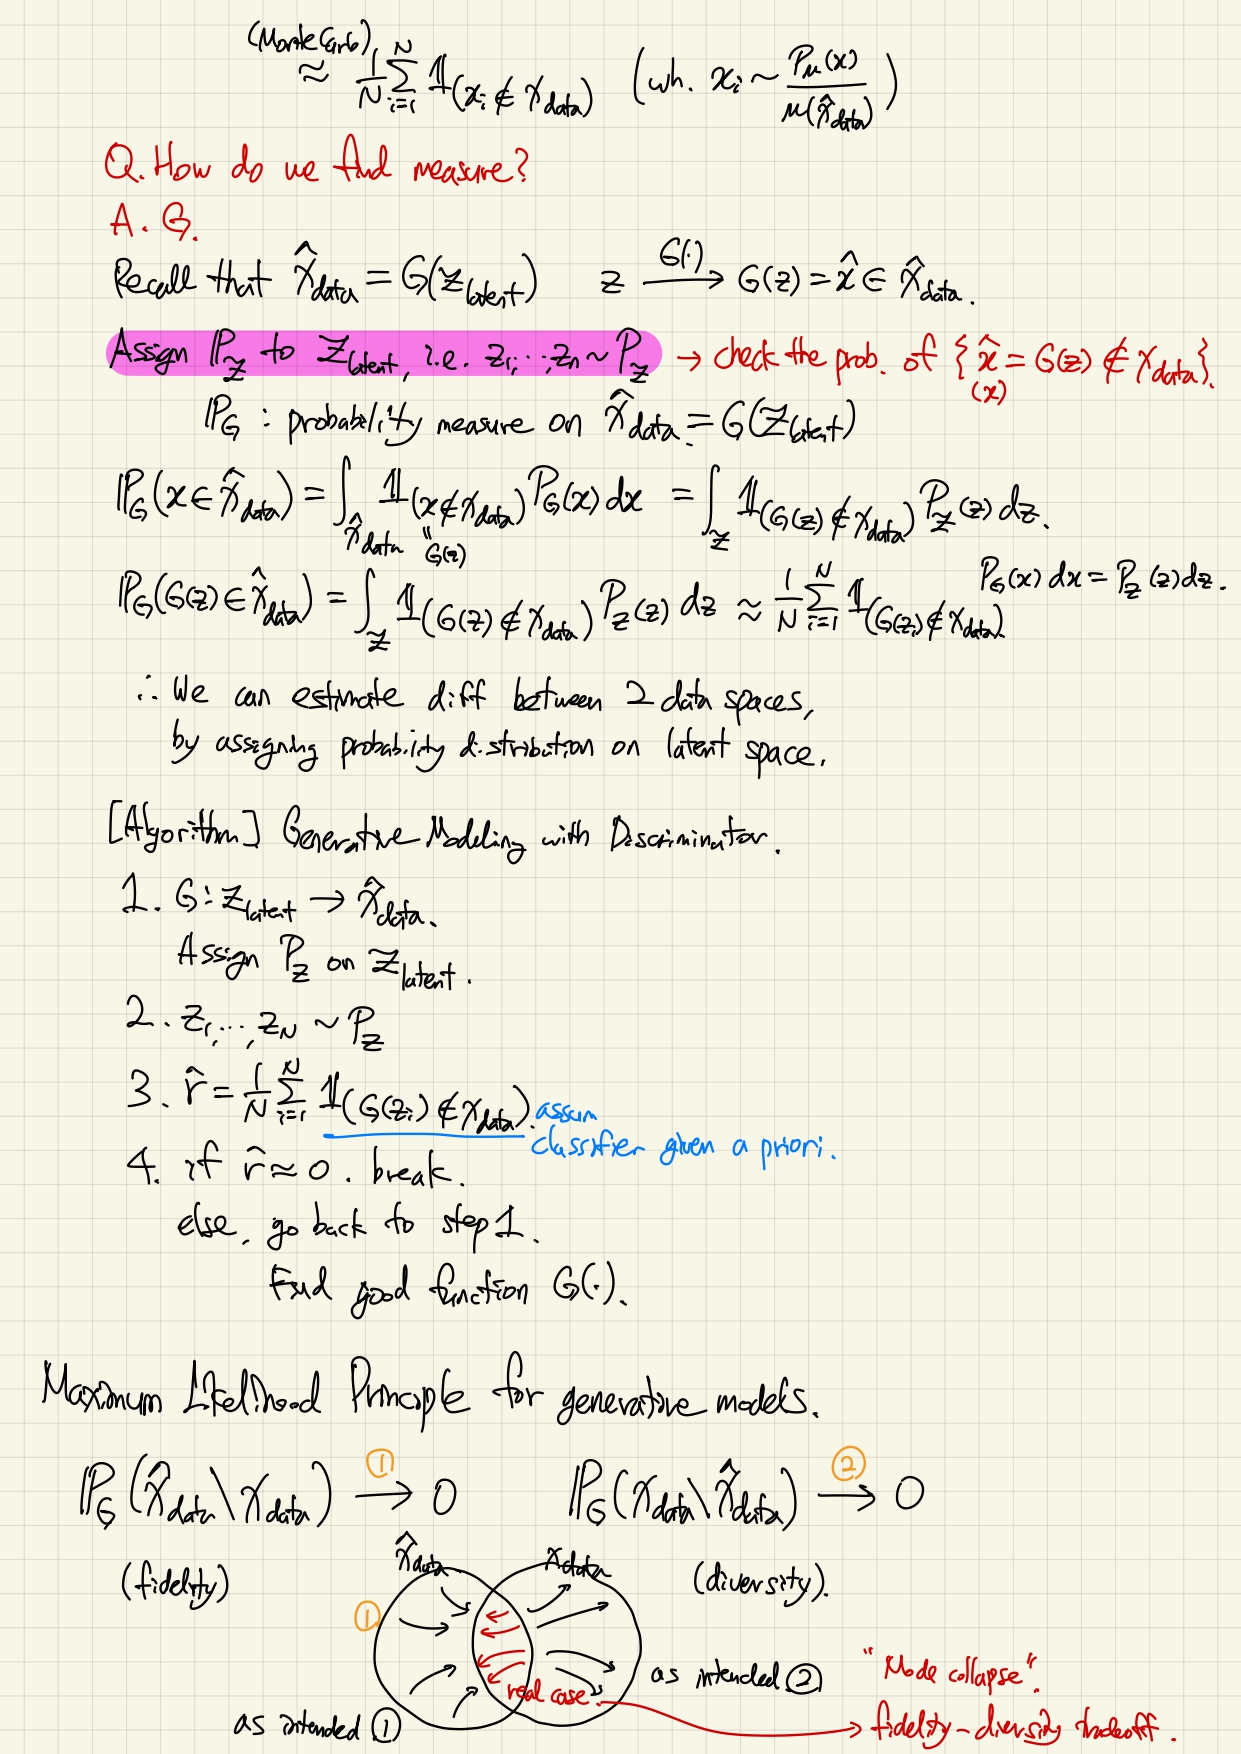 (Monte Carlo)
≈ 1/N Σ_{i=1}^{N} 𝟙_(x_i ∉ X_data) (wh. x_i ~ P_μ(x)/μ(X̂_data))
Q. How do we find measure?
A. G.
Recall that X̂_data = G(Z_latent) z —G(·)→ G(z) = x̂ ∈ X̂_data.
Assign ℙ_Z to Z_latent, i.e. z_1, ..., z_n ~ P_Z → check the prob. of {x̂ = G(z) ∉ X_data}.
(x)
ℙ_G : probability measure on X̂_data = G(Z_latent)
ℙ_G(x ∈ X̂_data) = ∫_{X̂_data} 𝟙_(x ∉ X_data) P_G(x) dx = ∫_Z 𝟙_(G(z) ∉ X_data) P_Z(z) dz.
" G(z)
P_G(x) dx = P_Z(z) dz.
ℙ_G(G(z) ∈ X̂_data) = ∫_Z 𝟙_(G(z) ∉ X_data) P_Z(z) dz ≈ 1/N Σ_{i=1}^{N} 𝟙_(G(z_i) ∉ X_data)
∴ We can estimate diff between 2 data spaces,
by assigning probability distribution on latent space.
[Algorithm] Generative Modeling with Discriminator.
1. G : Z_latent → X̂_data.
Assign P_Z on Z_latent.
2. z_1, ..., z_N ~ P_Z
3. r̂ = 1/N Σ_{i=1}^{N} 𝟙_(G(z_i) ∉ X_data). assum
classifier given a priori.
4. if r̂ ≈ 0. break.
else, go back to step 1.
Find good function G(·).
Maximum Likelihood Principle for generative models.
ℙ_G(X̂_data \ X_data) —①→ 0 ℙ_G(X_data \ X̂_data) —②→ 0
(fidelity) X̂_data X_data (diversity).
①
real case. as intended ② "Mode collapse".
as intended ① → fidelity - diversity tradeoff.